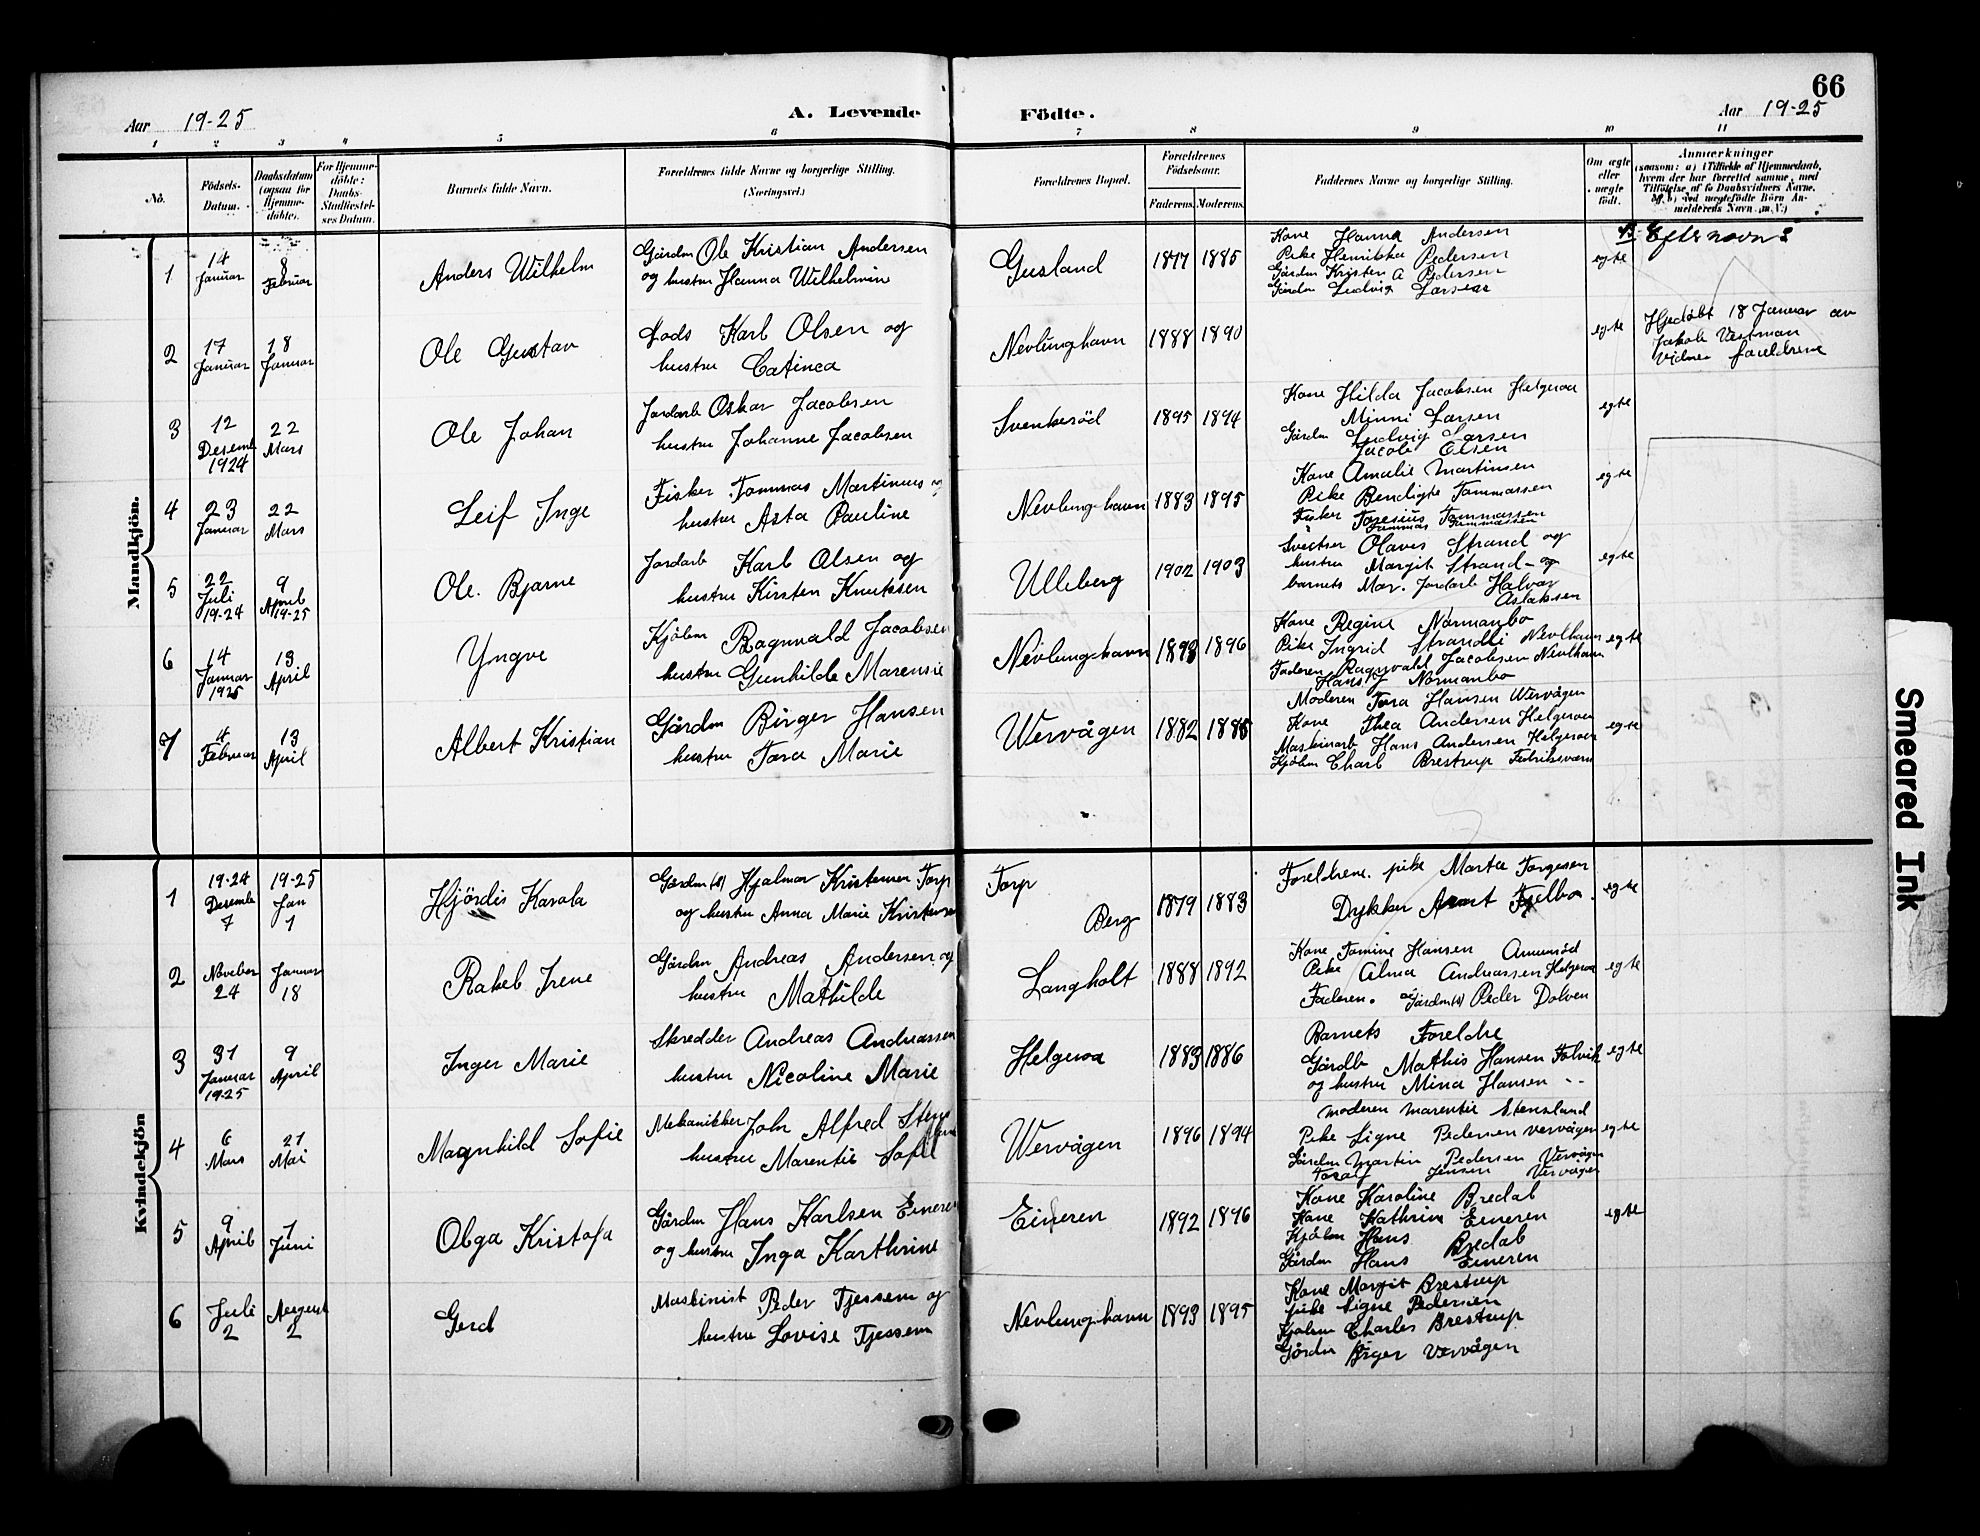 66
Aar 19-25 A. Levende Födte. Aar 19-25
1 2 3 4 5 6 7 8 9 10 11
No.
Födsels-
Datum.
Daabsdatum
(ogsaa for
Hjemme-
döbte).
For Hjemme-
döbte:
Daabs-
Stadfæstel-
ses Datum.
Barnets fulde Navn.
Forældrenes fulde Navne og borgerlige Stilling.
(Næringsvei.)
Forældrenes Bopæl.
Forældrenes
Födselsaar.
Faderens. Moderens.
Faddernes Navne og borgerlige Stilling.
Om ægte
eller
uægte
födt.
Anmærkninger
(saasom: a) i Tilfælde af Hjemmedaab,
hvem der har forrettet samme, med
Tilföielse af to Daabsvidners Navne,
og b) ved uægtefödte Börn An-
melderens Navn m. V.)
Mandkjön.
1
14
Januar
8
Februar
Anders Wilhelm
Gårdm Ole Kristian Andersen
og hustru Hanna Wilhelmine
Gusland
1877 1885
Kone Hanna Andersen
Pike Henrikka Pedersen
Gårdm Kristen A Pedersen
Gårdm Ludvig Larsen
egte
Efternavn?
2
17
Januar
18
Januar
Ole Gustav
Lods Karl Olsen og
hustru Catinca
Nevlunghavn
1888 1890
egte
Hjedøbt 18 Januar av
Jakob Vestman
Vidner foreldrene
3
12
Desemb
1924
22
Mars
Ole Johan
Jordarb Oskar Jacobsen
hustru Johanne Jacobsen
Svenkerød
1895 1894
Kone Hilda Jacobsen Helgeroa
Minni Larsen
Gårdm Ludvig Larsen
Jacob Olsen
egte
4
23
Januar
22
Mars
Leif Inge
Fisker Tommas Martinius og
hustru Asta Pauline
Nevlunghavn
1883 1895
Kone Amalie Martinsen
Pike Bendigte Tommassen
Fisker Toresius Tommassen
Tommas Tommassen
egte
5
22
Juli
19-24
9
April
19-25
Ole. Bjarne
Jordarb Karl Olsen og
hustru Kirsten Knutssen
Ulleberg
1902 1903
Olaves Strand og
hustru Margit Strand - og
barnets Mor. Jordarb Halvar
Aslaksen
egte
6
14
Januar
1925
13
April
Yngve
Kjøbm Ragnvald Jacobsen
hustru Gunhilde Marensie
Nevlunghavn
1893 1896
Kone Regine Normanbo
Pike Ingrid Strandli Nevlhavn
Faderen Ragnvald Jacobsen Nevlhavn
Hans J Normanbo
egte
7
4
Februar
13
April
Albert Kristian
Gårdm Birger Hansen
hustru Tora Marie
Wervågen
1882 1886
Moderen Tora Hansen Wervågen
Kone Thea Andersen Helgeroa
Maskinarb Hans Andersen Helgeroa
Kjøbm Charl Brestrup Fredriksværn
egte
Kvindekjön
1
19-24
Desemb
7
19-25
Jan
1
Hjördis Karola
Gårdm (s) Hjalmar Kristensen Torp
og hustru Anna Marie Kristensen
Torp
Berg
1879 1883
Foreldrene. pike Marta Torgesen
Dykker Arnt Fjelbo.
egte
2
November
24
Januar
18
Rakel Irene
Gårdm Andreas Andersen og
hustru Mathilde
Langholt
1888 1892
Kone Tomine Hansen Amunrød
Pike Alma Andreassen Helgeroa
Faderen. og Gårdm (s) Peder Dolven
egte
3
31
Januar
19-25
9
April
Inger Marie
Skredder Andreas Andreassen
hustru Nicoline Marie
Helgeroa
1883 1886
Barnets Foreldre
Gårdb Mathis Hansen Folvik
og hustru Mina Hansen - -
egte
4
6
Mars
21
Mai
Magnhild Sofie
Mekanikker John Alfred Stens
land
hustru Marentie Sofie
Wervågen
1896 1894
moderen marentie Stensland
Pike Signe Pedersen vervågen
Gårdm Martin Pedersen Vervågen
Toralf Jensen Vervågen
egte
5
9
April
7
Juni
Olga Kristofa
Gårdm Hans Karlsen Eineren
og hustru Inga Karthrine
Eineren
1892 1896
Kone Karoline Bredal
Kone Kathrine Eineren
Kjøbm Hans Bredal
Gårdm Hans Eineren
egte
6
Juli
2
August
2
Gerd
Maskinist Peder Tjessem og
hustru Lovise Tjessem
Nevlunghavn
1893 1895
Kone Margit Brestrup
pike Signe Pedersen
Kjøbm Charles Brestrup
Gårdm Birger Vervågen
Smeared Ink